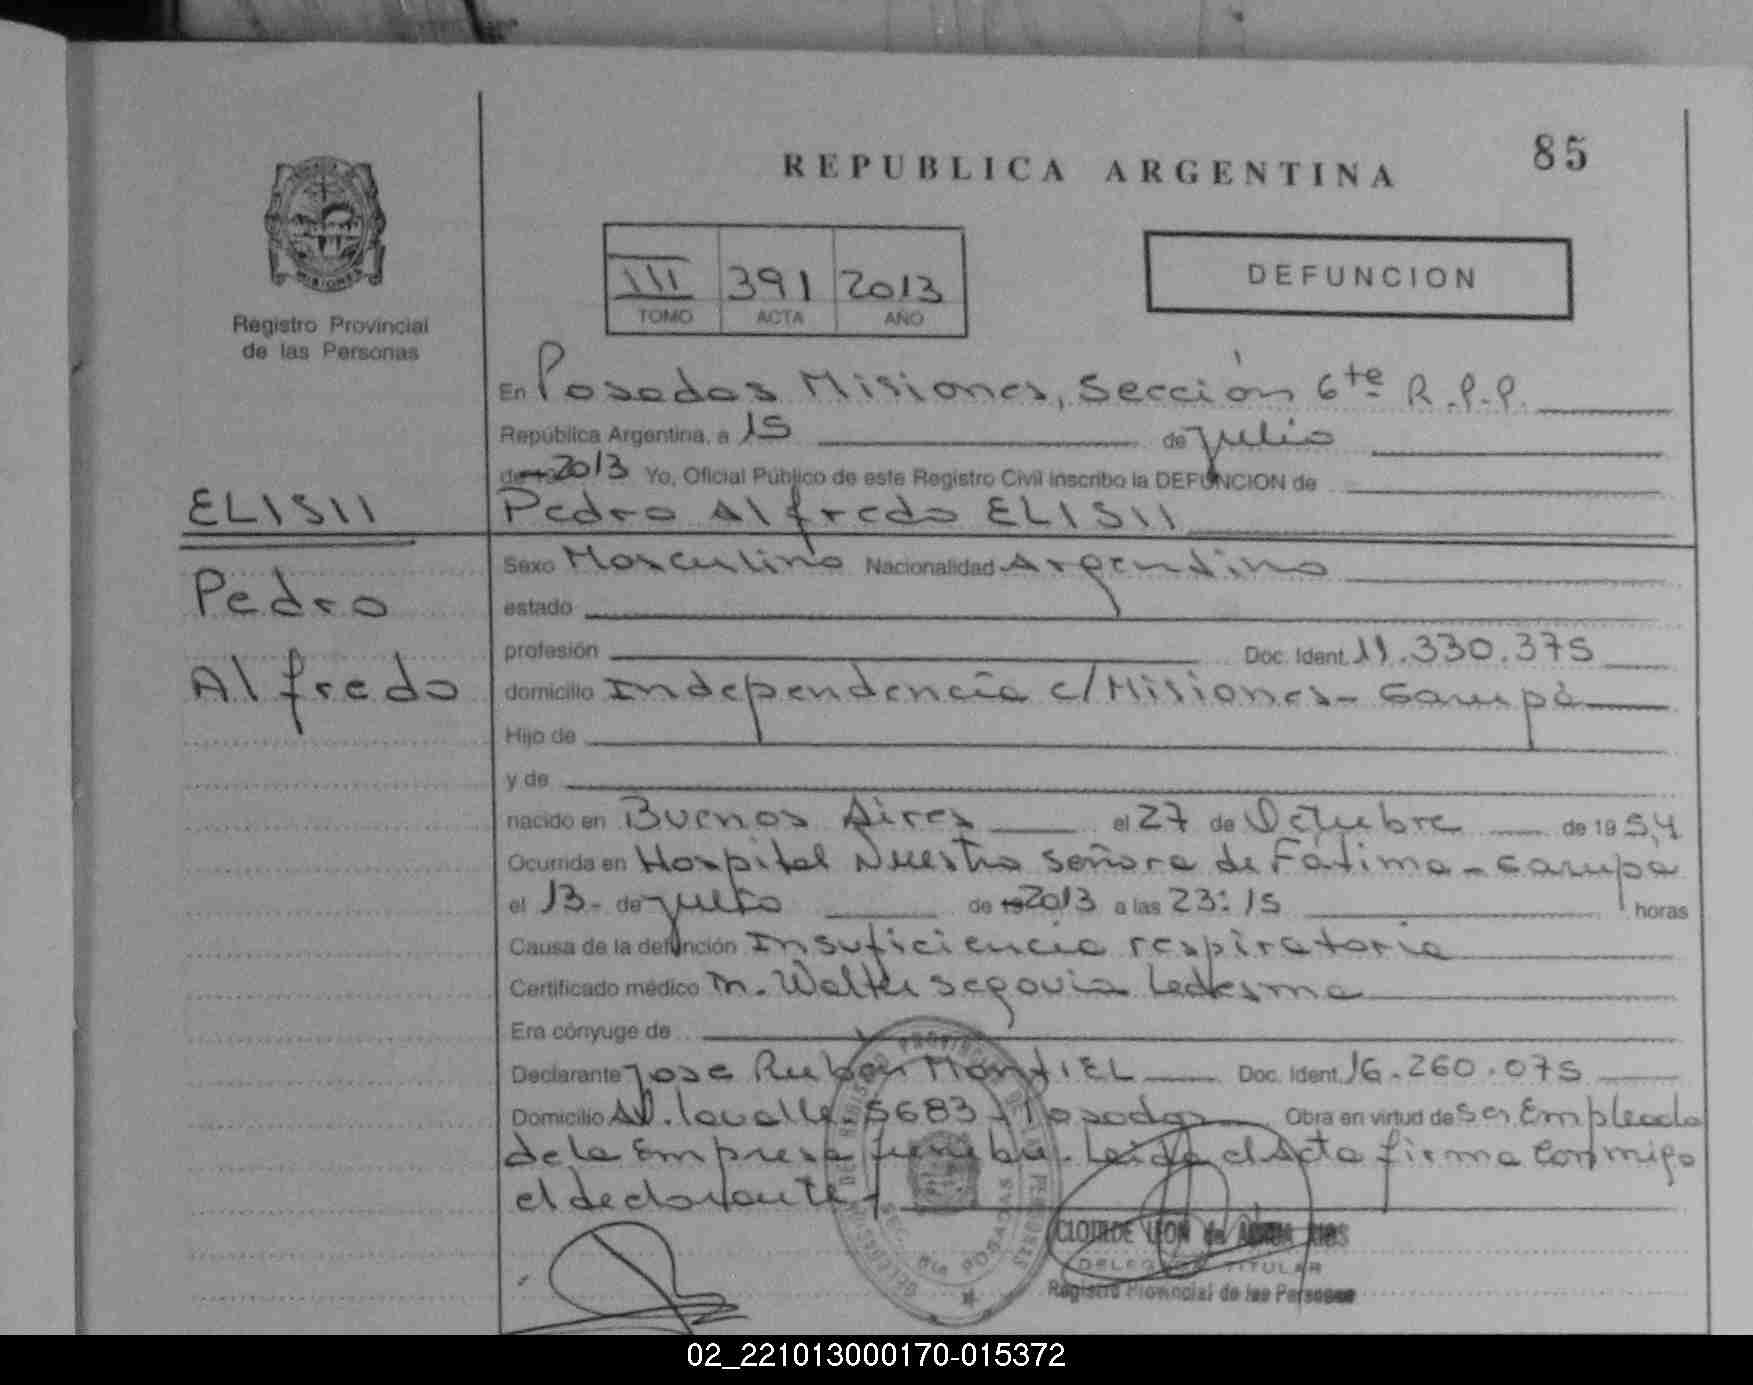 85
REPUBLICA ARGENTINA
MISIONES
Registro Provincial
de las Personas
III 391 2013
TOMO ACTA AÑO
DEFUNCION
En Posadas Misiones, Sección 6te R.P.P.
República Argentina, a 15 de julio
de 19 2013 Yo, Oficial Público de este Registro Civil inscribo la DEFUNCION de
ELISII
Pedro Alfredo ELISII
Pedro
Alfredo
Sexo Masculino Nacionalidad Argentino
estado
profesión Doc. Ident. 11.330.375
domicilio Independencia c/Misiones - Garupá
Hijo de
y de
nacido en Buenos Aires el 27 de Octubre de 1954
Ocurrida en Hospital Nuestra Señora de Fátima - Garupa
el 13 - de julio de 19 2013 a las 23:15 horas
Causa de la defunción Insuficiencia respiratoria
Certificado médico M. Walter Segovia Ledesma
Era cónyuge de
Declarante Jose Ruben MONTIEL Doc. Ident. 16.260.075
Domicilio AV. Lavalle 5683 - Posadas Obra en virtud de ser Empleado
de la Empresa funebre. Leida el Acta firma conmigo
el declarante
CLOTILDE LEON de
DELEGADA TITULAR
Registro Provincial de las Personas
02_221013000170-015372